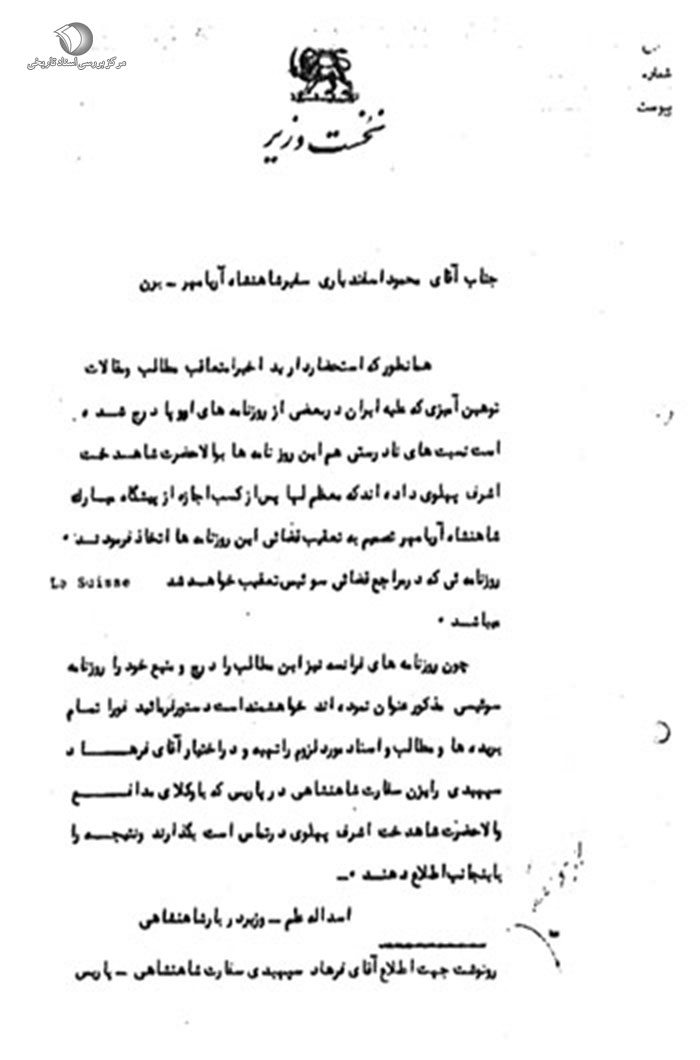 مرکز بررسی اسناد تاریخی
شماره
پیوست
نخست وزیر
جناب آقای محمود اسفندیاری سفیر شاهنشاه آریامهر ــ برن
همانطور که استحضار دارید اخیرا متعاقب مطالب و مقالات
توهین آمیزی که علیه ایران در بعضی از روزنامه های اروپا درج شده
است نسبت های نادرستی هم این روزنامه ها به والاحضرت شاهدخت
اشرف پهلوی داده اند که معظم لها پس از کسب اجازه از پیشگاه مبارک
شاهنشاه آریامهر تصمیم به تعقیب قضائی این روزنامه ها اتخاذ فرمودند .
روزنامه ئی که در مراجع قضائی سوئیس تعقیب خواهد شد La Suisse
میباشد .
چون روزنامه های فرانسه نیز این مطالب را درج و منبع خود را روزنامه
سوئیسی مذکور عنوان نموده اند خواهشمند است دستور فرمائید فورا تمام
بریده ها و مطالب و اسناد مورد لزوم را تهیه و در اختیار آقای فرهاد
سپهبدی رایزن سفارت شاهنشاهی در پاریس که با وکلای مدافع
والاحضرت شاهدخت اشرف پهلوی در تماس است بگذارند و نتیجه را
باینجانب اطلاع دهند .ــ
اسداله علم ــ وزیر دربار شاهنشاهی
رونوشت جهت اطلاع آقای فرهاد سپهبدی سفارت شاهنشاهی ــ پاریس